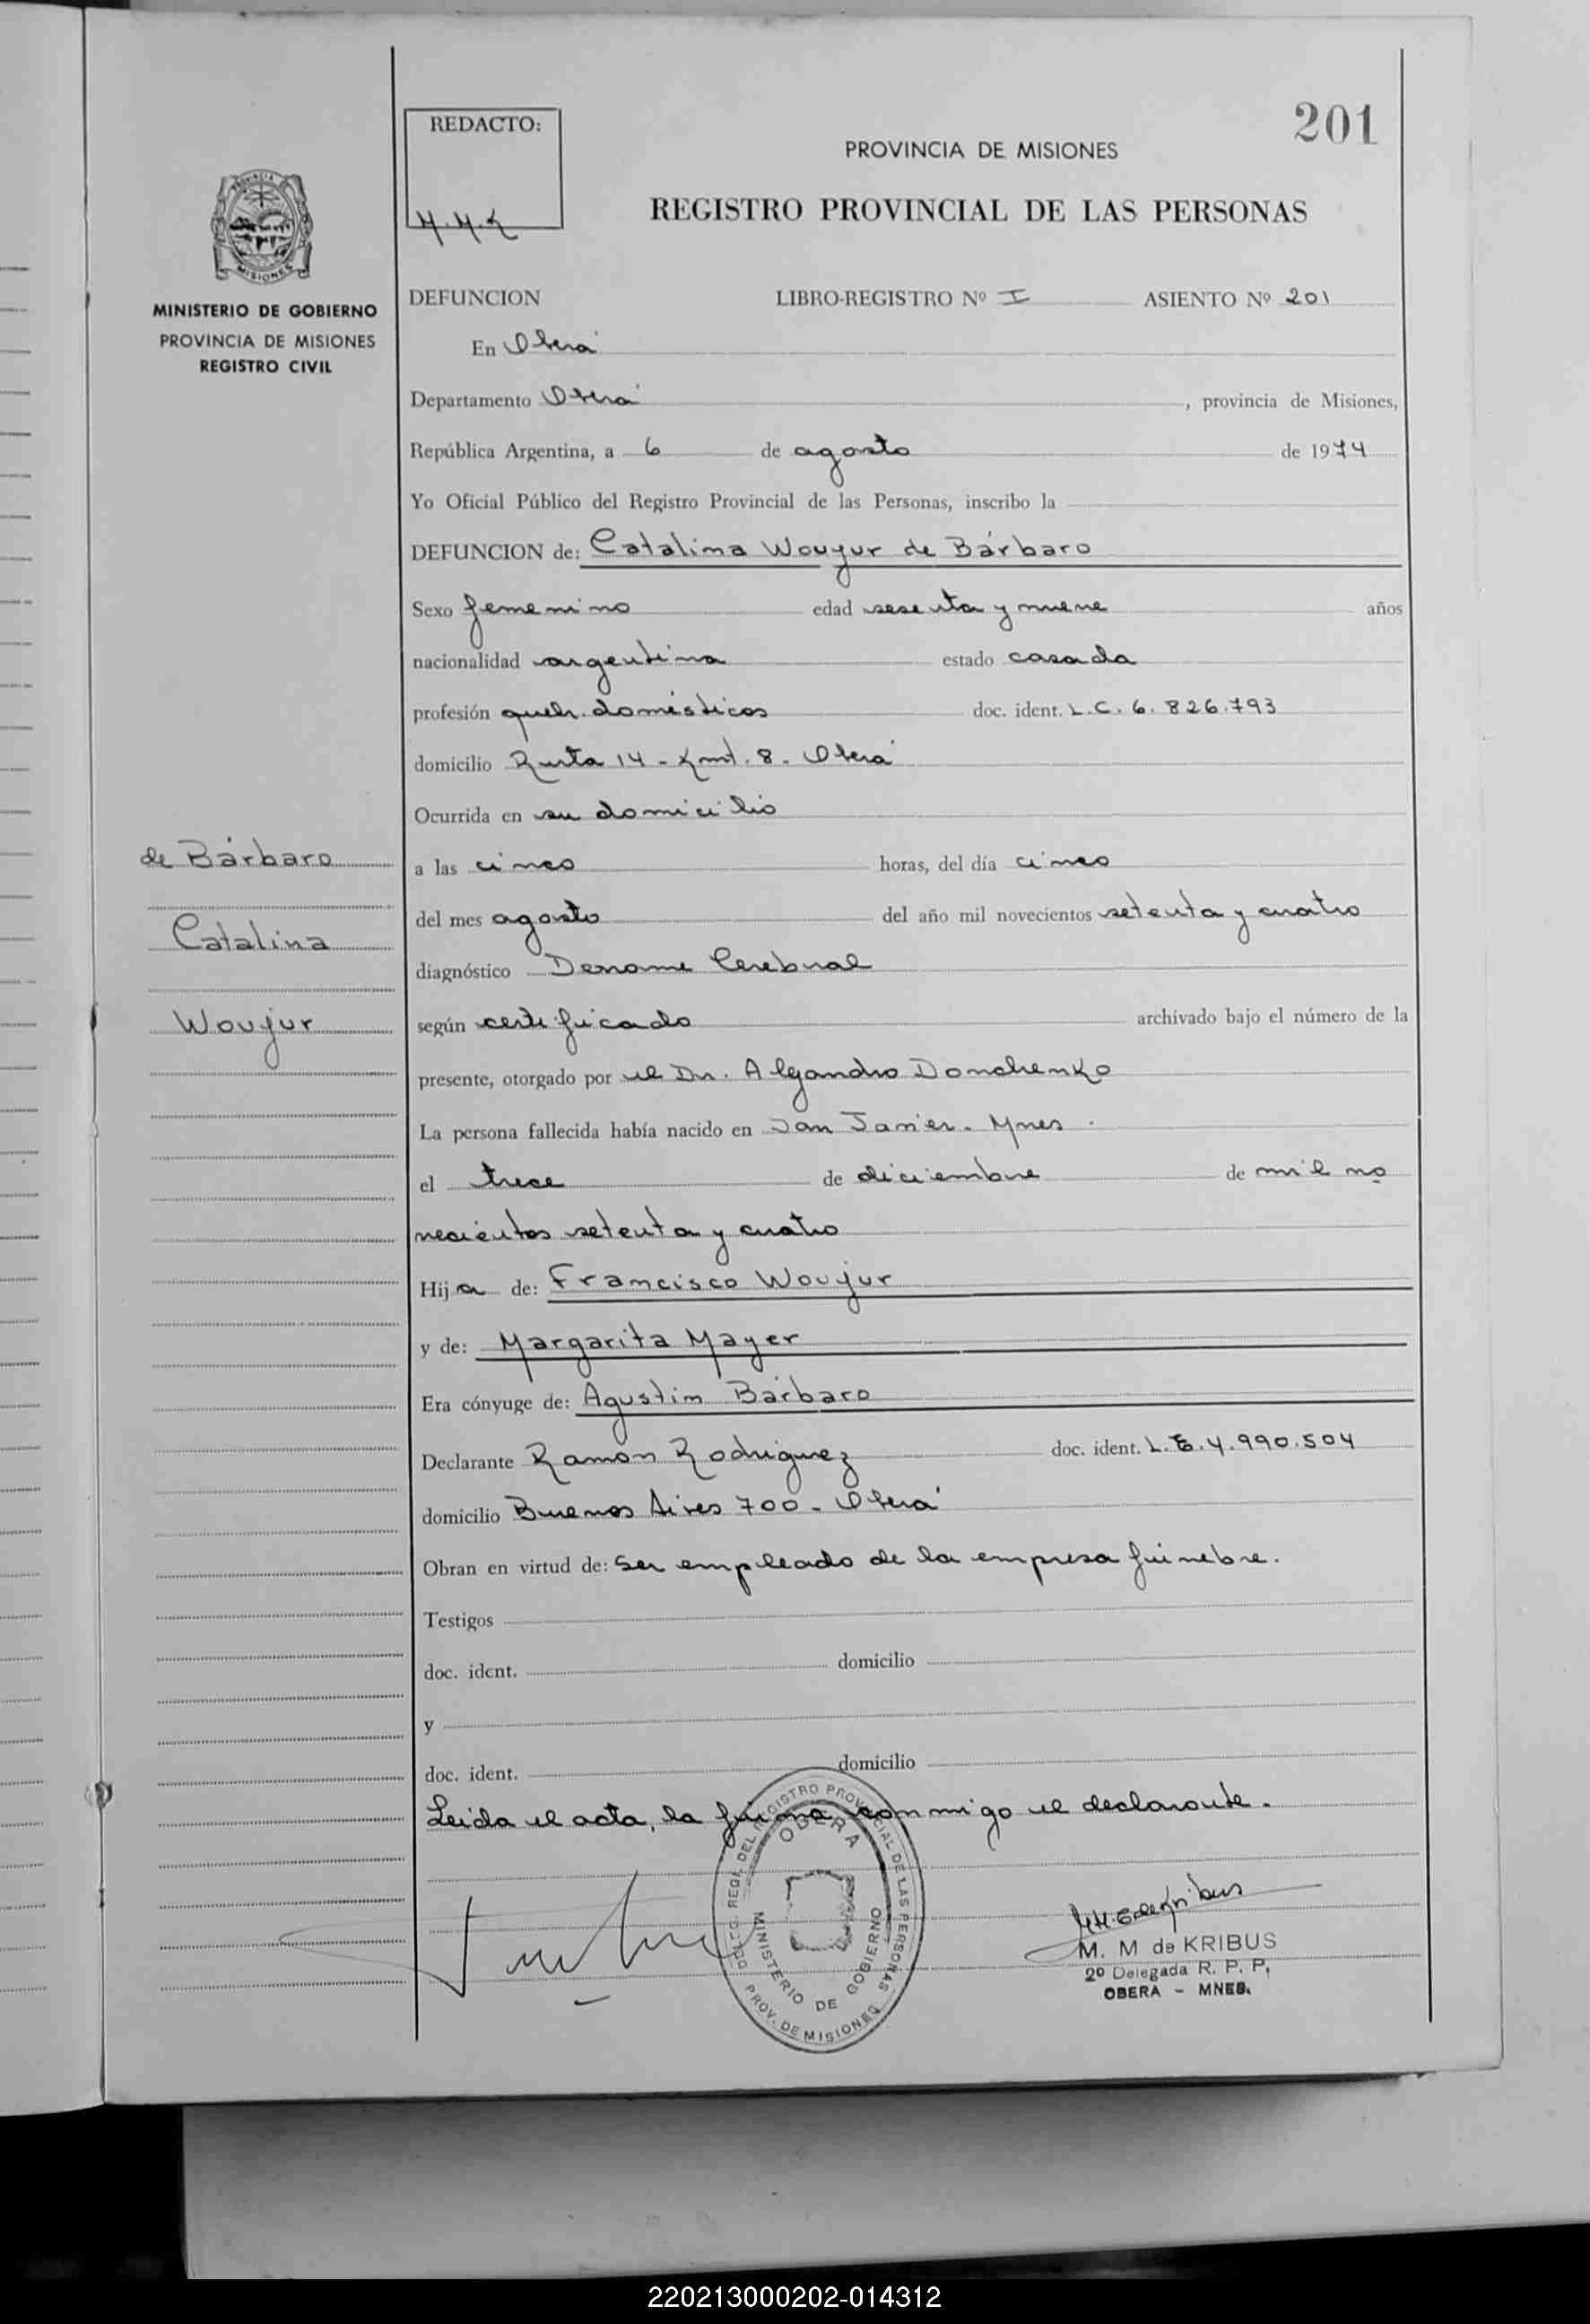 201
REDACTO:
M.M.K
PROVINCIA DE MISIONES
REGISTRO PROVINCIAL DE LAS PERSONAS
PROVINCIA
MISIONES
MINISTERIO DE GOBIERNO
PROVINCIA DE MISIONES
REGISTRO CIVIL
DEFUNCION LIBRO-REGISTRO Nº I ASIENTO Nº 201
En Oberá
Departamento Oberá, provincia de Misiones,
República Argentina, a 6 de agosto de 1974
Yo Oficial Público del Registro Provincial de las Personas, inscribo la
DEFUNCION de: Catalina Woujur de Bárbaro
Sexo femenino edad sesenta y nueve años
nacionalidad argentina estado casada
profesión queh. domésticos doc. ident. L.C. 6.826.793
domicilio Ruta 14 - Kmt. 8 - Oberá
Ocurrida en su domicilio
a las cinco horas, del día cinco
del mes agosto del año mil novecientos setenta y cuatro
diagnóstico Derrame Cerebral
según certificado archivado bajo el número de la
presente, otorgado por el Dr. Alejandro Donchenko
La persona fallecida había nacido en San Javier - Mnes.
el trece de diciembre de mil no
vecientos setenta y cuatro
Hija de: Francisco Woujur
y de: Margarita Mayer
Era cónyuge de: Agustin Bárbaro
Declarante Ramón Rodriguez doc. ident. L.E. 4.990.504
domicilio Buenos Aires 700 - Oberá
Obran en virtud de: Ser empleado de la empresa fúnebre.
Testigos
doc. ident. domicilio
y
doc. ident. domicilio
Leida el acta, la firma conmigo el declarante.
de Bárbaro
Catalina
Woujur
REGISTRO PROVINCIAL DE LAS PERSONAS
OBERA
MINISTERIO DE GOBIERNO
PROV. DE MISIONES
M. M de KRIBUS
2º Delegada R. P. P.
OBERA - MNES.
220213000202-014312